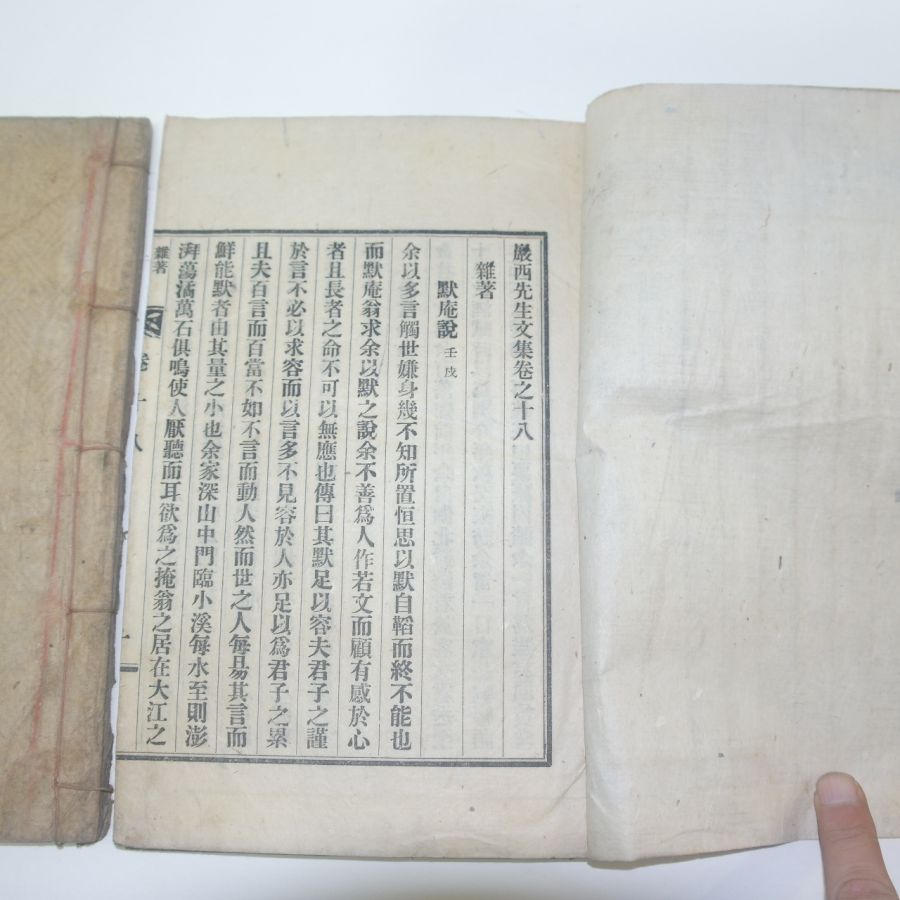 巖西先生文集卷之十八
雜著
默庵說 壬戌
余以多言觸世嫌身幾不知所置恒思以默自韜而終不能也
而默庵翁求余以默之說余不善爲人作若文而顧有感於心
者且長者之命不可以無應也傳曰其默足以容夫君子之謹
於言不必以求容而以言多不見容於人亦足以爲君子之累
且夫百言而百當不如不言而動人然而世之人每易其言而
鮮能默者由其量之小也余家深山中門臨小溪每水至則澎
湃蕩潏萬石俱鳴使人厭聽而耳欲爲之掩翁之居在大江之
雜著
卷十八
一